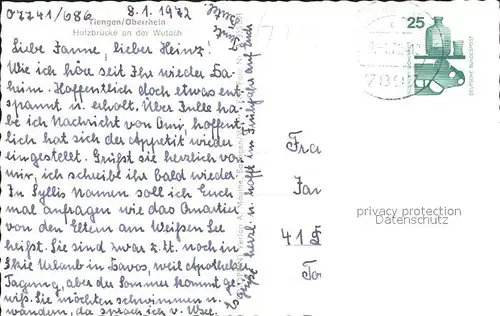 07741/686
8.1.1972
Tiengen/Oberrhein
Holzbrücke an der Wutach
Liebe Fanne, lieber Heinz!
Wie ich höre seit Ihr wieder da-
heim. Hoffentlich doch etwas ent-
spannt u. erholt. Über Fulle ha-
be ich Nachricht von Omi, hoffent-
lich hat sich der Appetit wieder
eingestellt. Grüßt sie herzlich von
mir, ich schreibe ihr bald wieder.
In Syllis Namen soll ich Euch
mal anfragen wie das Quartier
von den Eltern am Weißen See
heißt. Sie sind zwar z. Zt. noch in
Skie Urlaub in Davos, weil Apotheker
Tagung, aber der Sommer kommt ge-
wiß. Sie möchten schwimmen u.
wandern, da sprach ich v. Wsee.
Es grüßt herzl. u. hofft im Frühjahr auf Euch
Fra
Jan
41
25
DEUTSCHE BUNDESPOST
789
privacy protection
Datenschutz